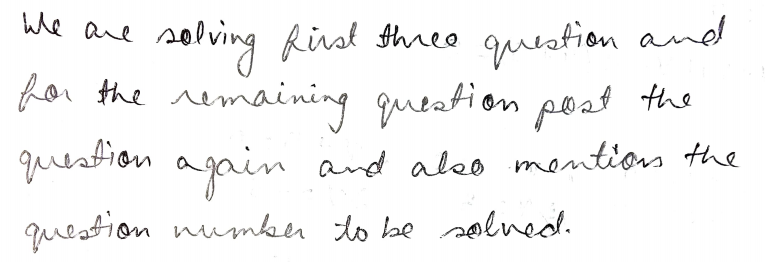 We are solving first three question and
for the remaining question post the
question again and also mention the
question number to be solved.